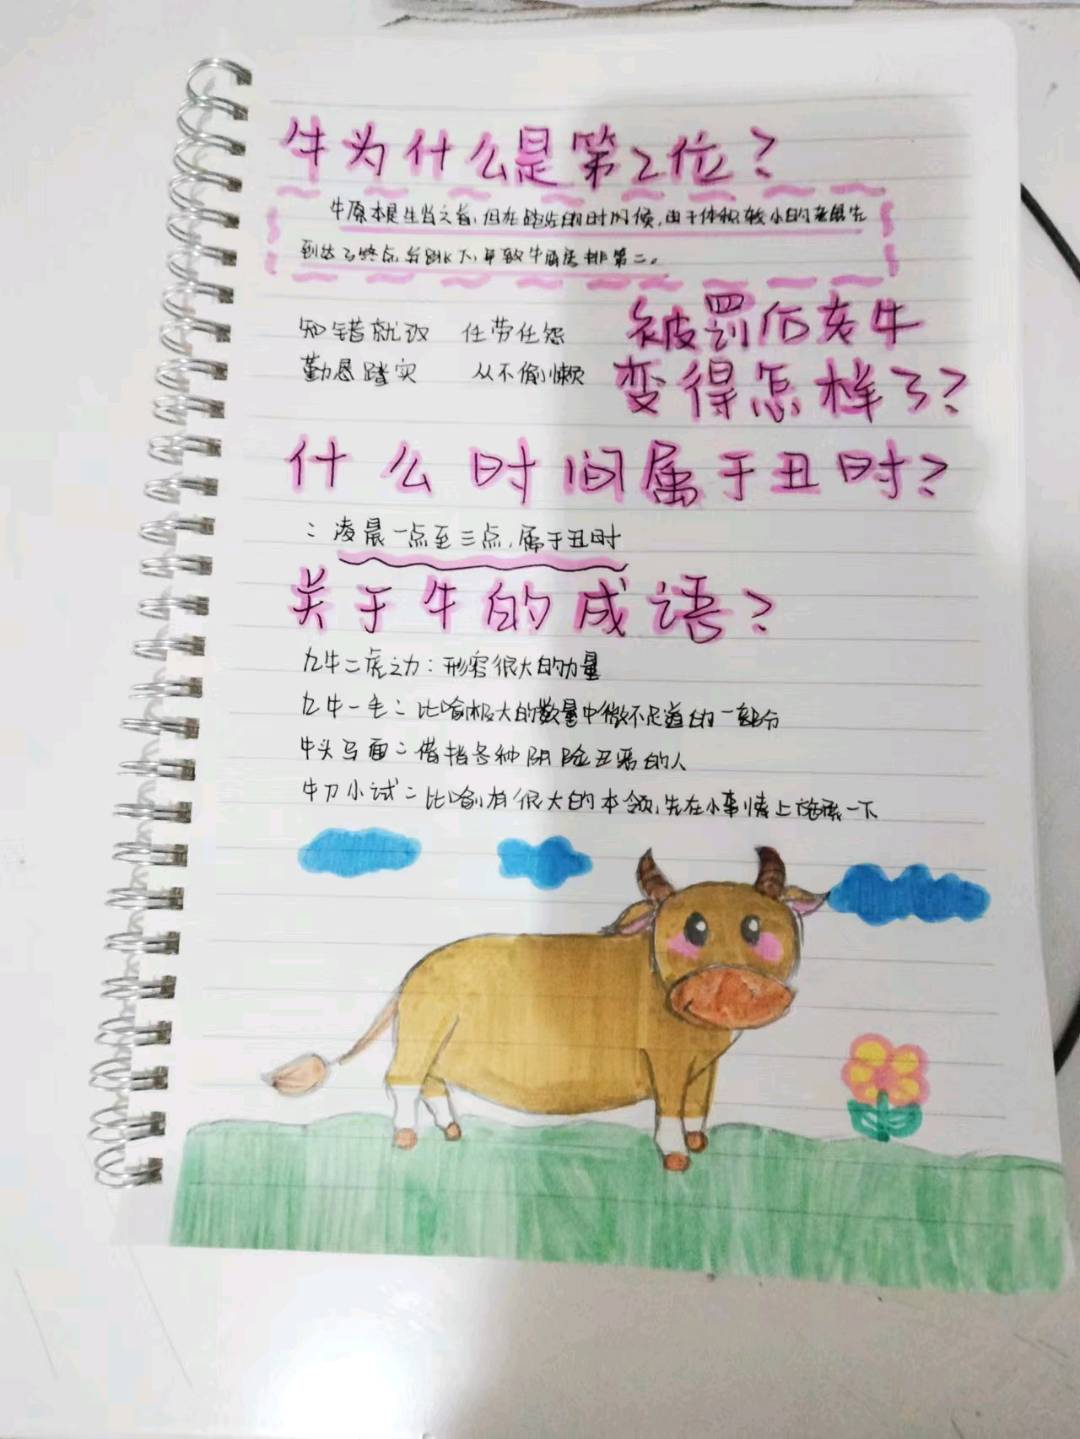 牛为什么是第2位?
牛原本是生肖之首,但在跑步的时候,由于体积较小的老鼠先
到达了终点,导致牛屈居排第二。
知错就改 任劳任怨 被罚后灰牛
勤恳踏实 从不偷懒 变得怎样了?
什么时间属于丑时?
:凌晨一点至三点,属于丑时
关于牛的成语?
九牛二虎之力:形容很大的力量
九牛一毛:比喻极大的数量中微不足道的一部分
牛头马面:借指各种阴险丑恶的人
牛刀小试:比喻有很大的本领,先在小事情上施展一下